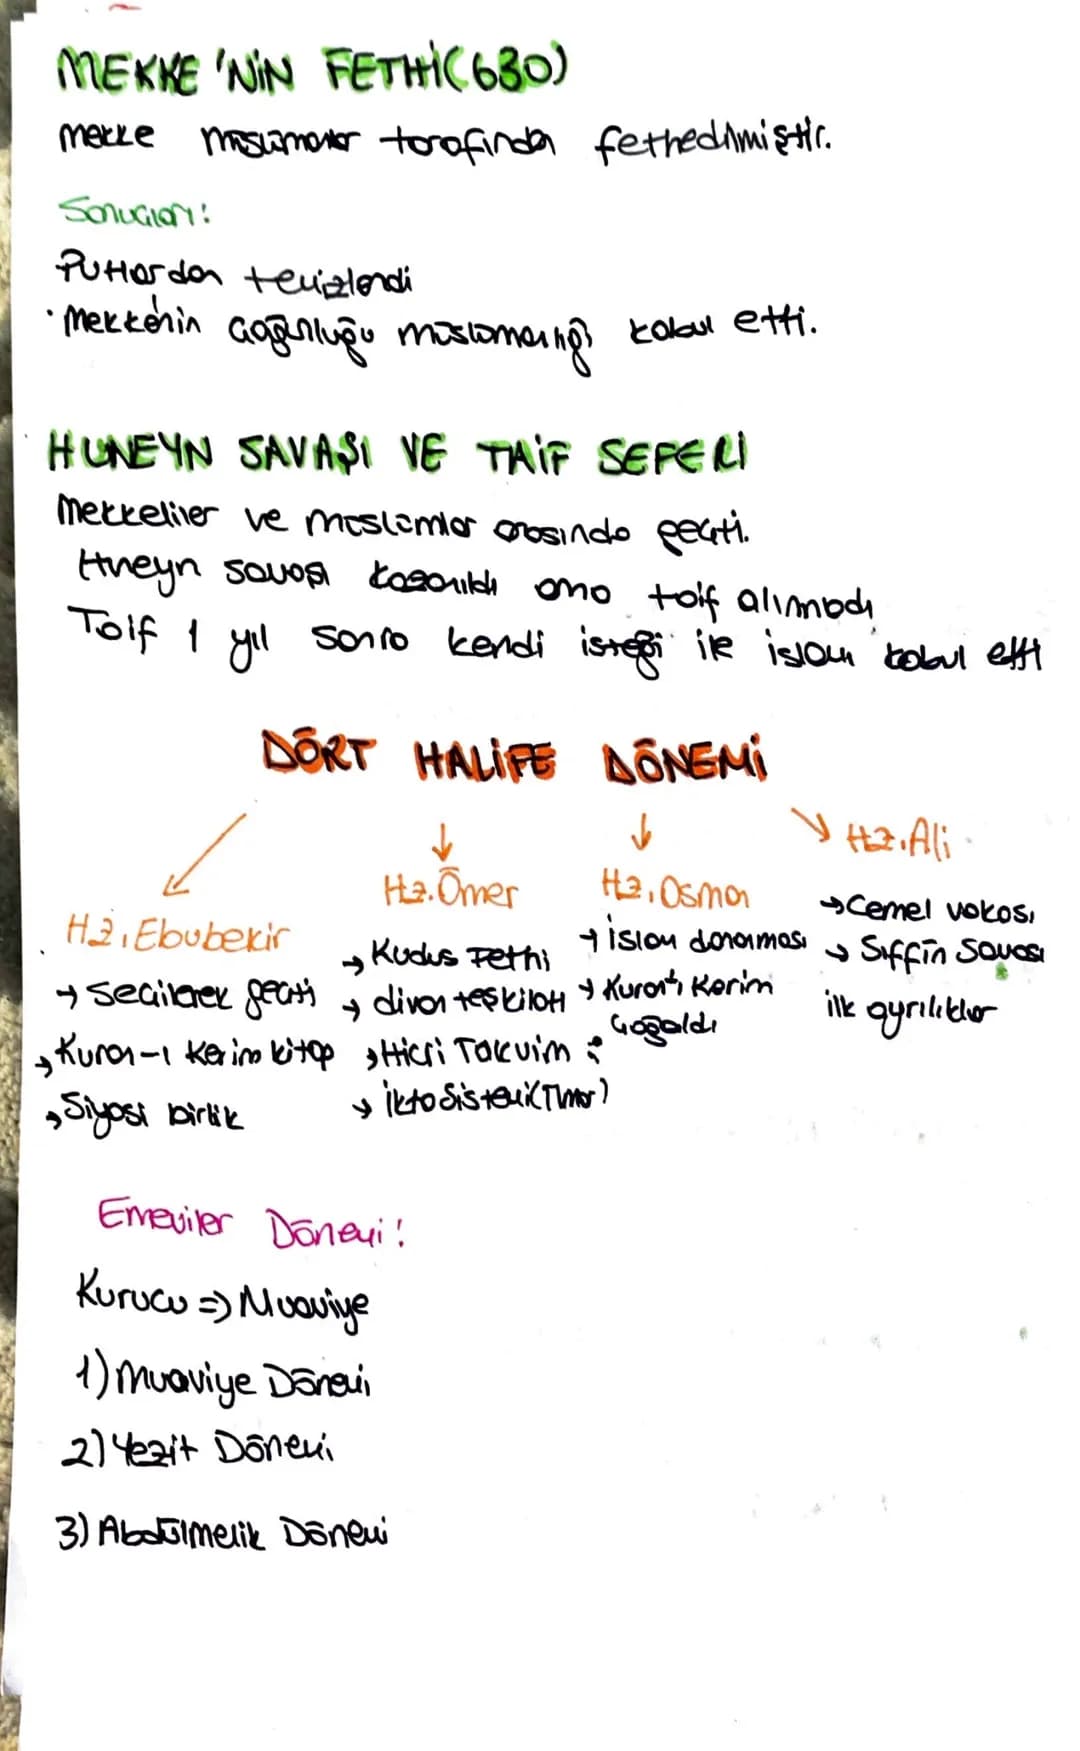 MEKKE 'NİN FETHİ (630)
Mekke müslümanlar tarafından fethedilmiştir.
Sonuçları:
Putlardan temizlendi
· Mekke'nin çoğunluğu müslümanlığı kabul etti.
HUNEYN SAVAŞI VE TAİF SEFERİ
Mekkeliler ve müslümlar arasında geçti.
Huneyn savaşı kazanıldı ama taif alınmadı
Taif 1 yıl sonra kendi isteği ile islamı kabul etti
DÖRT HALİFE DÖNEMİ
Hz. Ebubekir
→ Seçilerek geçti
→ Kuran-ı Kerim kitap
→ Siyasi birlik
Hz. Ömer
→ Kudüs Fethi
→ divan teşkilatı
→ Hicri Takvim
→ İkta Sistemi (Tımar)
Hz. Osman
→ İslam donanması
→ Kuran-ı Kerim
çoğaldı
Hz. Ali
→ Cemel vakası
→ Sıffin Savaşı
ilk ayrılıklar
Emeviler Dönemi!
Kurucu => Muaviye
1) Muaviye Dönemi
2) Yezit Dönemi
3) Abdülmelik Dönemi